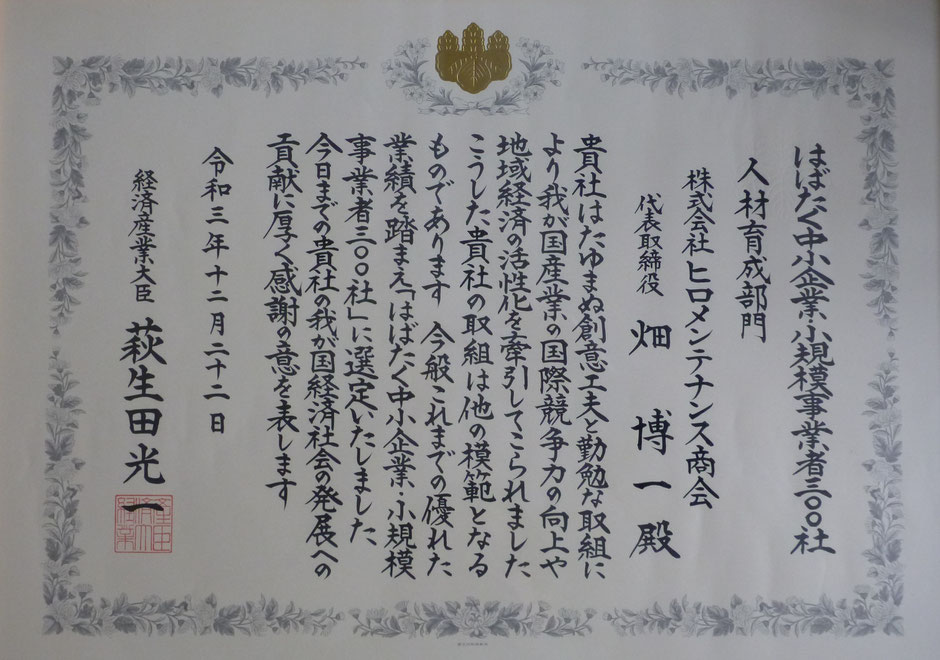 はばたく中小企業・小規模事業者三〇〇社
人材育成部門
株式会社 ヒロメンテナンス商会
代表取締役 畑 博一殿
貴社はたゆまぬ創意工夫と勤勉な取組に
より我が国産業の国際競争力の向上や
地域経済の活性化を牽引してこられました
こうした貴社の取組は他の模範となる
ものであります 今般これまでの優れた
業績を踏まえ「はばたく中小企業・小規模
事業者三〇〇社」に選定いたしました
今日までの貴社の我が国経済社会の発展への
貢献に厚く感謝の意を表します
令和三年十二月二十二日
経済産業大臣 萩生田光一